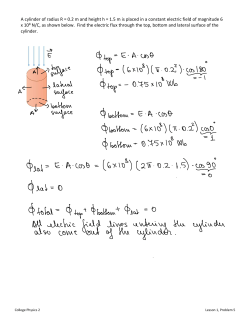 A cylinder of radius R = 0.2 m and height h = 1.5 m is placed in a constant electric field of magnitude 6
x 10⁸ N/C, as shown below. Find the electric flux through the top, bottom and lateral surface of the
cylinder.
E
A
top surface
lateral surface
A
bottom surface
A
Φtop = E · A · cosθ
Φtop = (6x10⁸)(π·0.2²) cos180° = -1
Φtop = - 0.75 x 10⁸ Wb
Φbottom = E · A · cosθ
Φbottom = (6x10⁸)(π·0.2²) cos0° = 1
Φbottom = 0.75x10⁸ Wb
Φlat = E · A · cosθ = (6x10⁸)(2π·0.2·1.5)·cos90° = 0
Φlat = 0
Φtotal = Φtop + Φbottom + Φlat = 0
All electric field lines entering the cylinder
also come out of the cylinder.
College Physics 2 Lesson 3, Problem 5